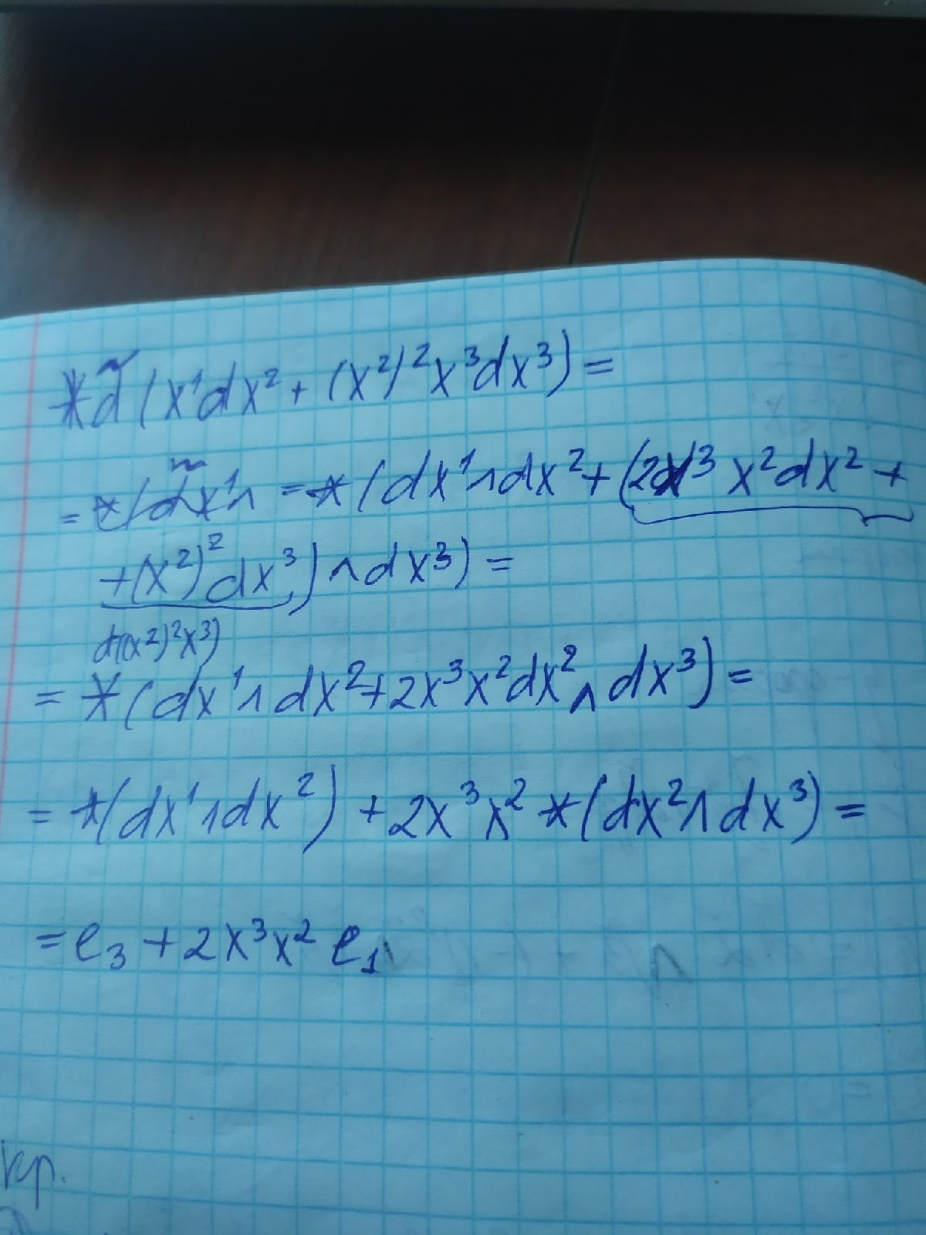 *d̃(x¹dx² + (x²)²x³dx³) =
= *(d̃x¹∧ = *(dx¹∧dx² + (2x³x²dx² +
+(x²)²dx³)∧dx³) =
d((x²)²x³)
= *(dx¹∧dx² + 2x³x²dx²∧dx³) =
= *(dx¹∧dx²) + 2x³x² *(dx²∧dx³) =
= e₃ + 2x³x² e₁